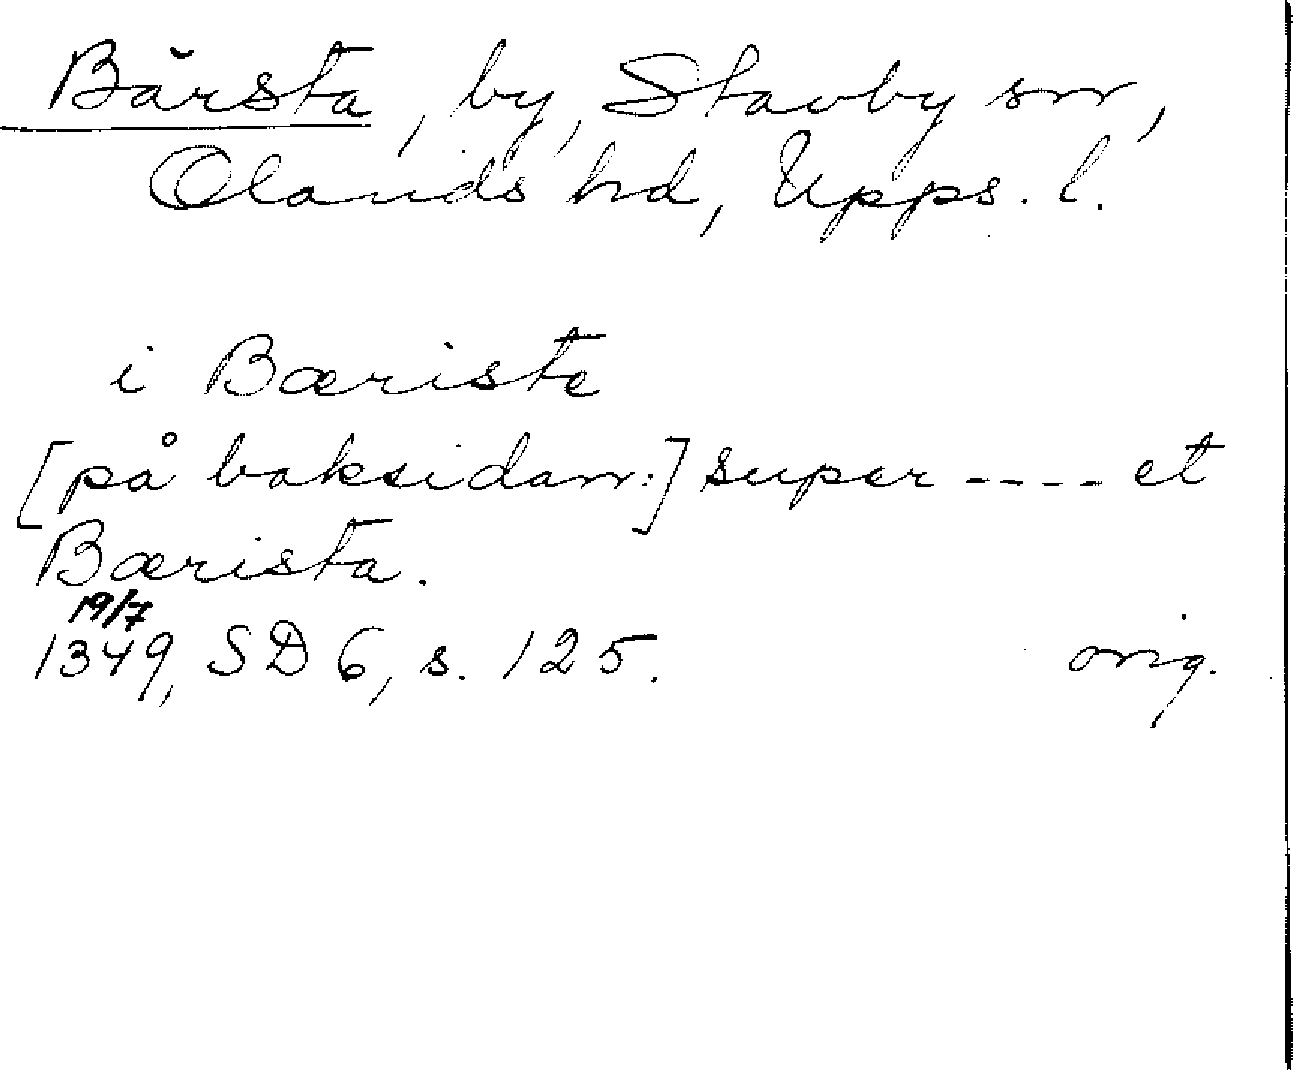 Bärsta, by, Stavby sn,
Olands hd, Upps. l.
i Bæriste
[på baksidan:] super ---- et
Bærista.
19/7
1349, SD 6, s. 125. orig.